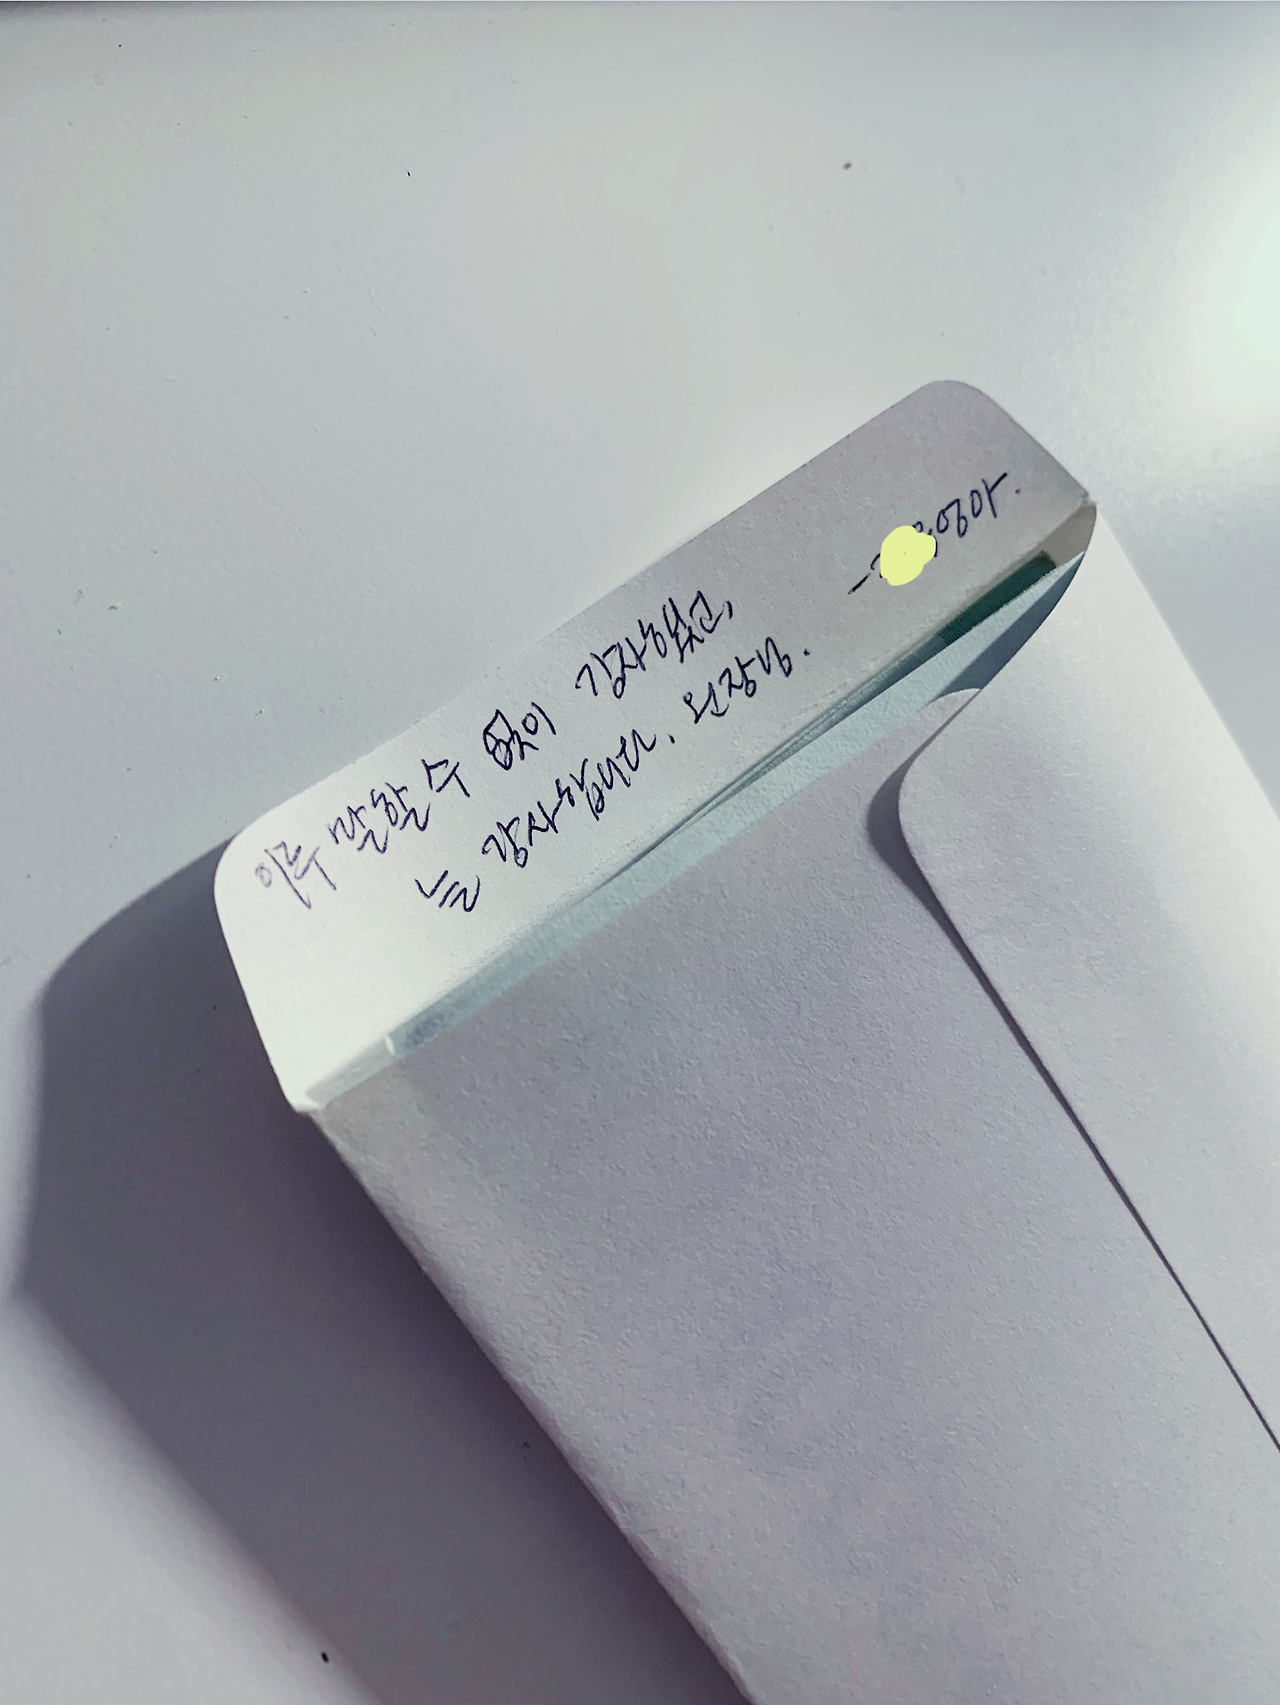 이루 말할 수 없이 감사했고,
늘 감사합니다. 원장님.
영아.